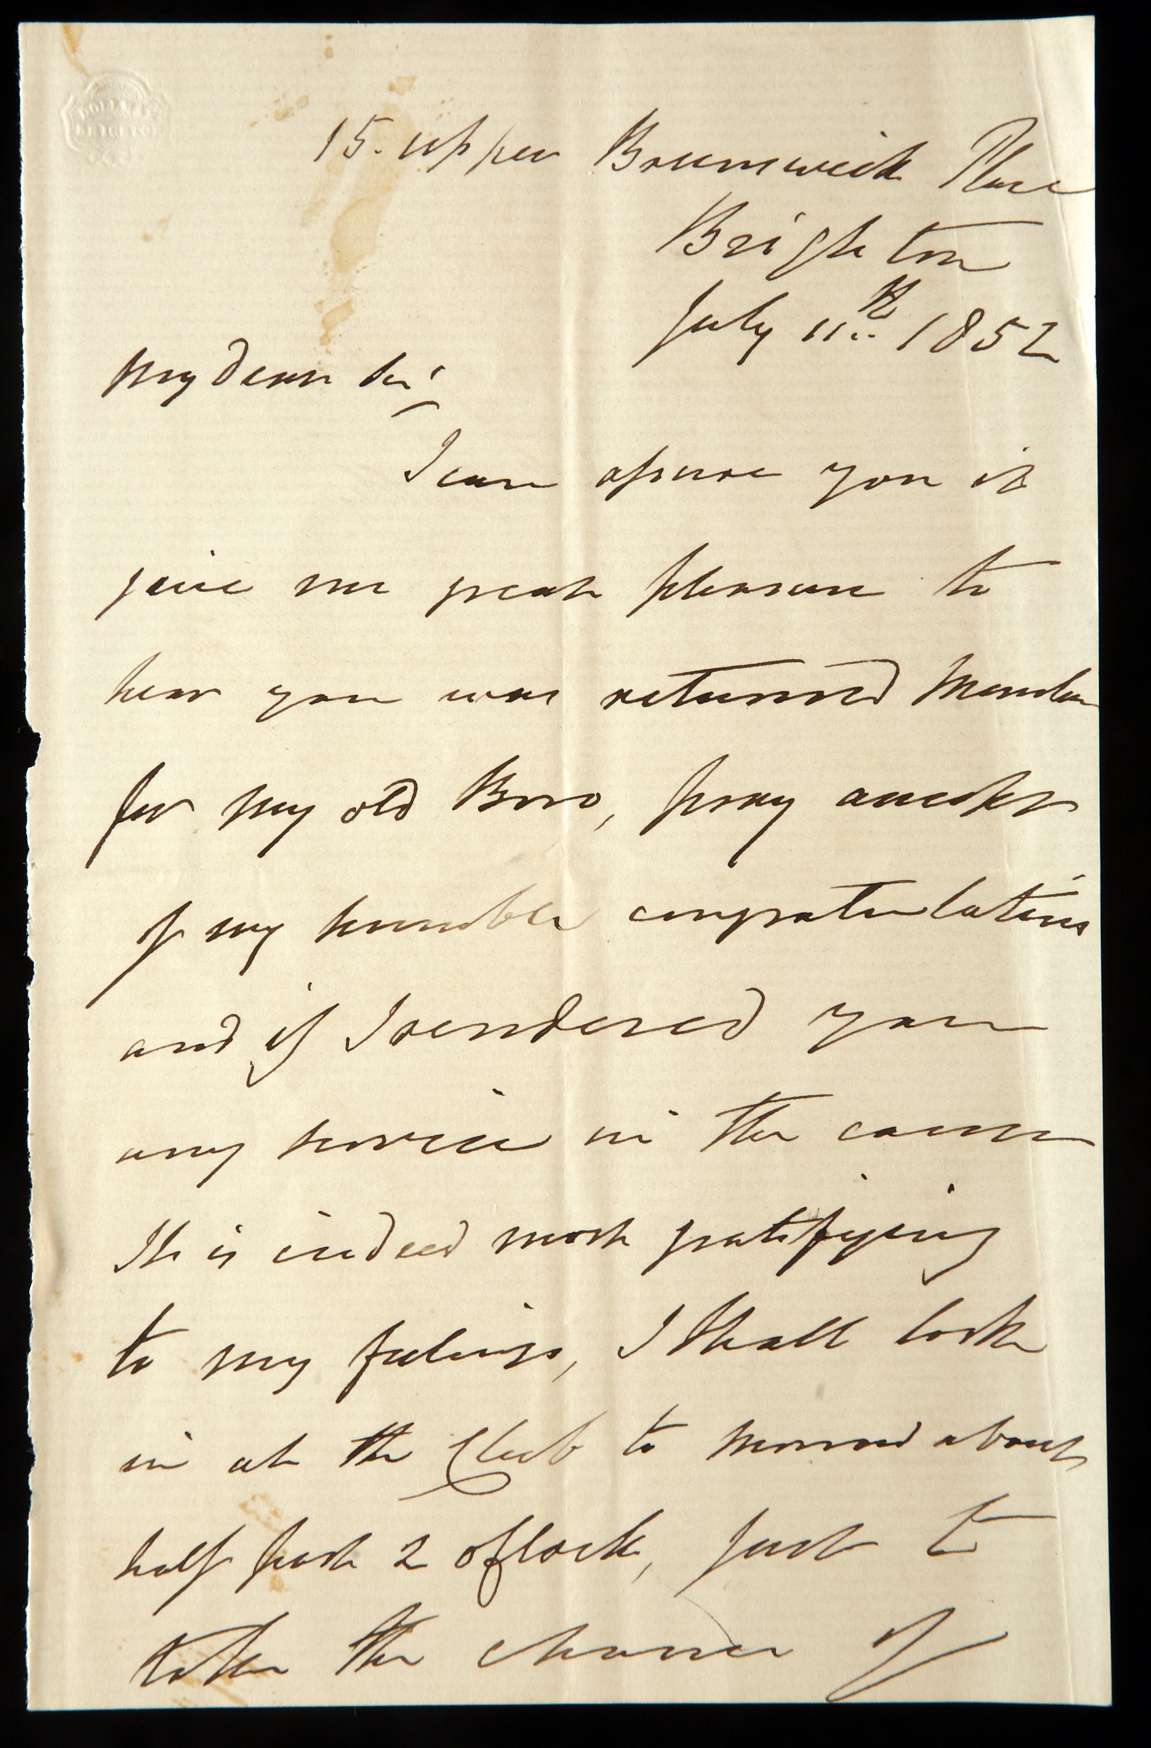 15. Upper Brunswick Place
Brighton
July 11th 1852
My Dear Sir,
I can assure you it
give me great pleasure to
hear you was returned Member
for my old Boro, pray accept
of my humble congratulations
and if I rendered you
any service in the cause
It is indeed most gratifying
to my feelings, I shall look
in at the Club to morrow about
half past 2 oClock, just to
take the chance of